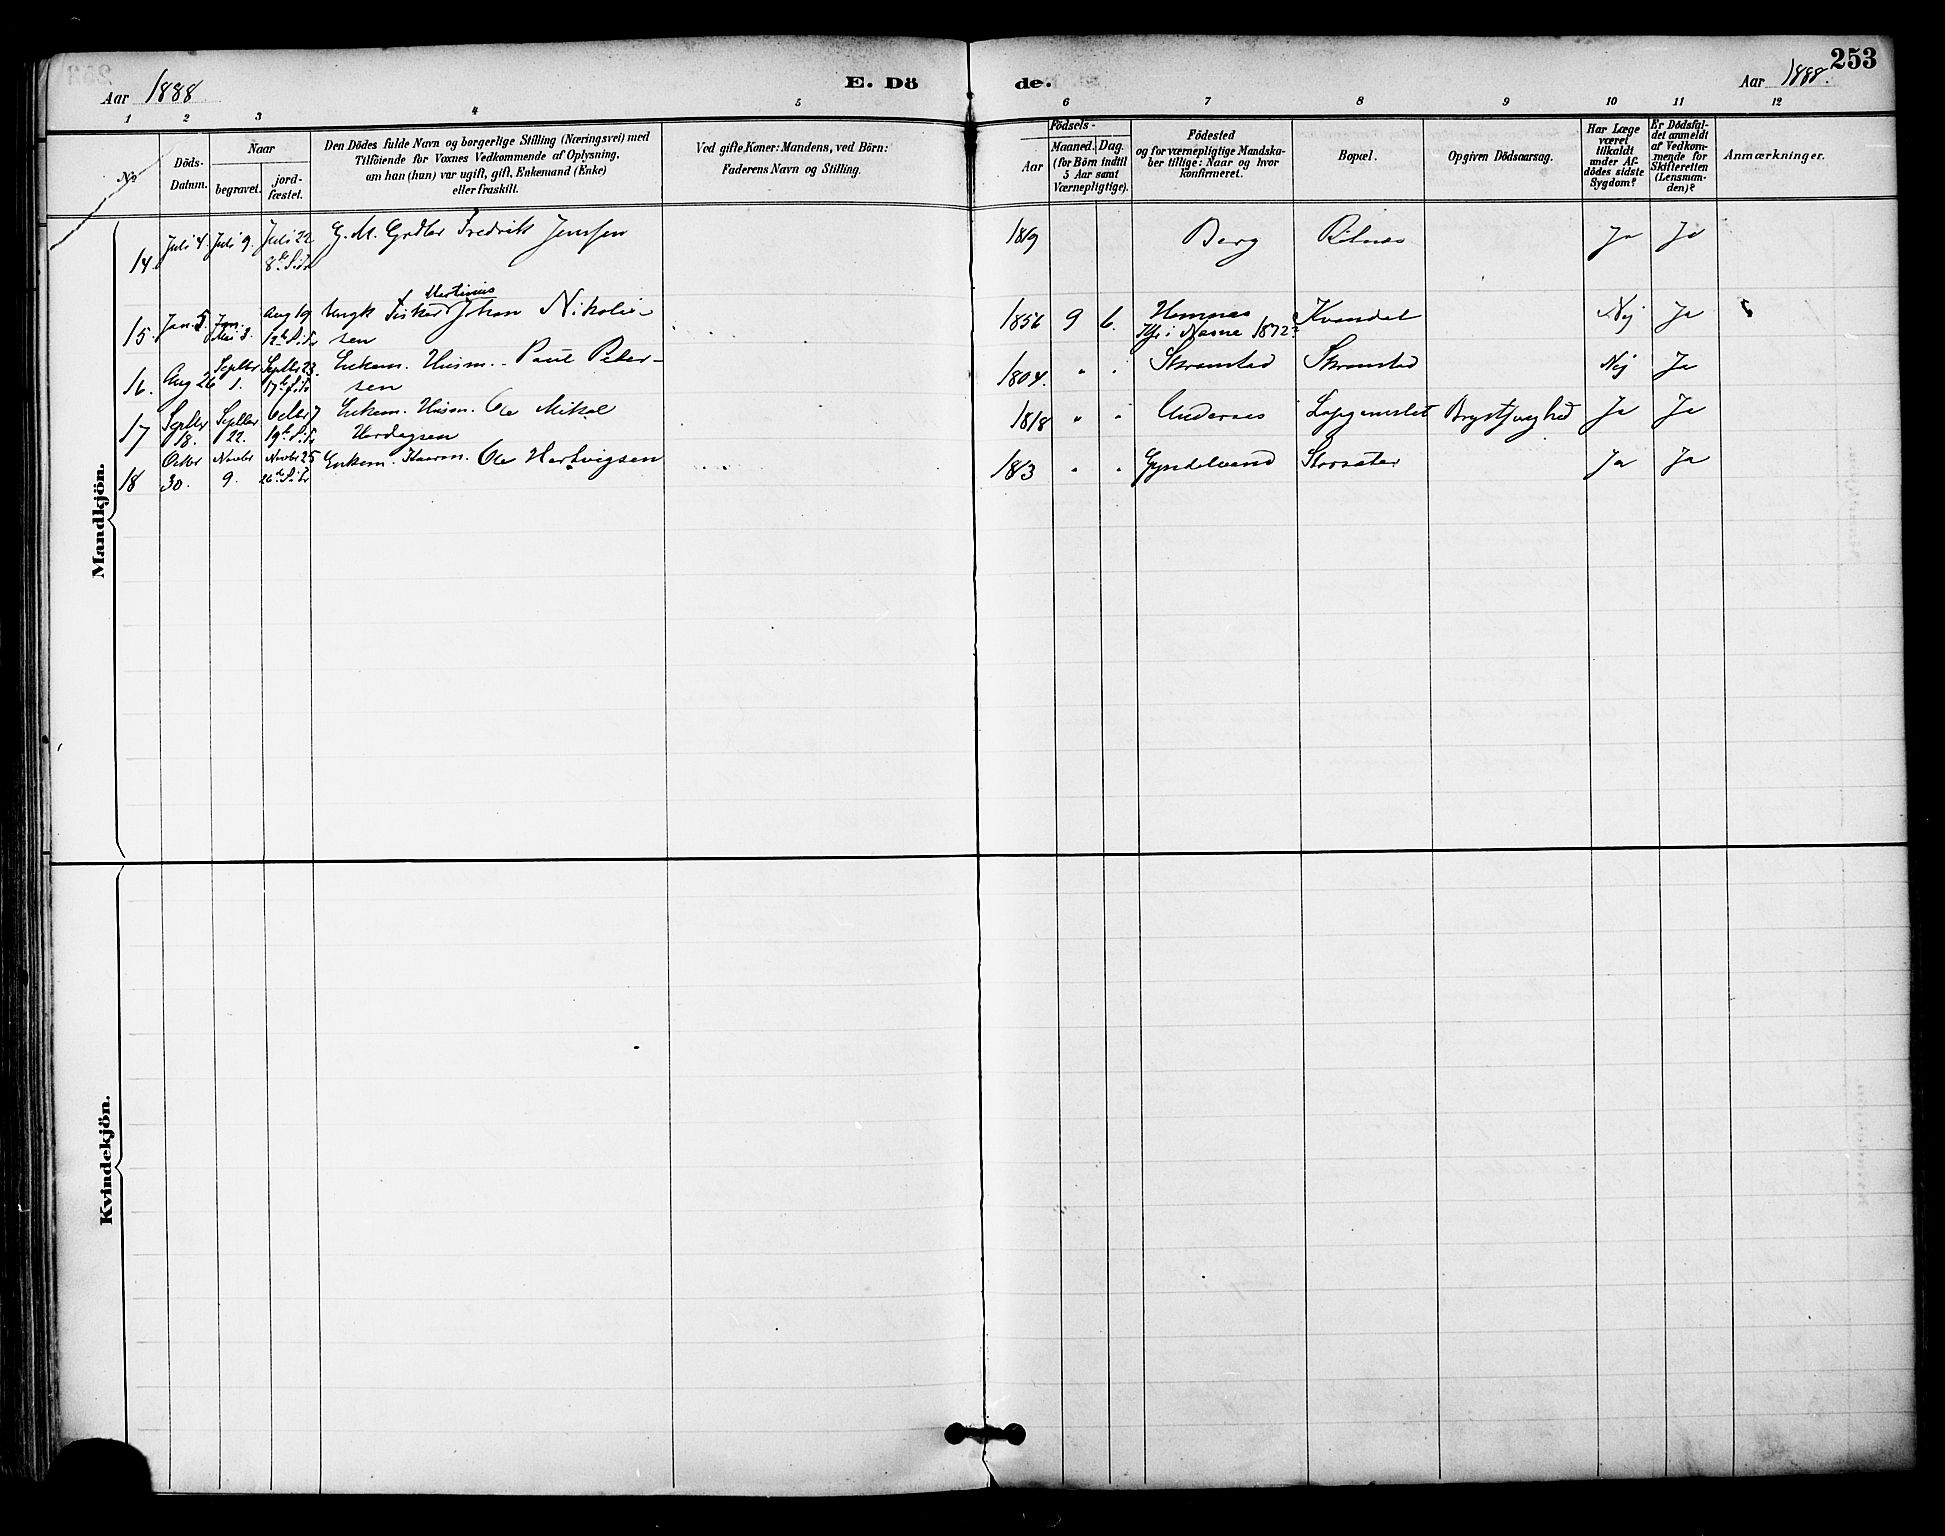 253
Aar 1888
E. Dö
de.
Aar 1888.
1 2 3 4 5 6 7 8 9 10 11 12
No
Döds-
Datum.
Naar
begravet.
jord-
fæstet.
Den Dödes fulde Navn og borgerlige Stilling (Næringsvei) med
Tilföiende for Voxnes Vedkommende af Oplysning,
om han (hun) var ugift, gift, Enkemand (Enke)
eller fraskilt.
Ved gifte Koner: Mandens, ved Börn:
Faderens Navn og Stilling.
Födsels-
Aar
Maaned. Dag.
(for Börn indtil
5 Aar samt
Værnepligtige).
Födested
og for værnepligtige Mandska-
ber tillige: Naar og hvor
konfirmeret.
Bopæl.
Opgiven Dödsaarsag.
Har Læge
været
tilkaldt
under Af-
dödes sidste
Sygdom?
Er Dödsfal-
det anmeldt
af Vedkom-
mende for
Skifteretten
(Lensman-
den)?
Anmærkninger.
Mandkjön.
14. Juli 4. Juli 9. Juli 22 G. M. Fredrik Jenssen 1819 Berg Ja Ja
15. Jan. 5. Aug 19 Ungk Fisker Martinus Johan Nikolai- 1856 9 6. Hemnes Kvandal Nej Ja
sen i Nesne 1872
16. Aug 26 Septbr 1. Septbr 23. Enkem. Husm. Paul Peter- 1804. " " Skramstad Skramstad Nej Ja
sen
17 Septbr 18. Septbr 22. Octbr 7 Enkem. Husm. Ole Mikal 1818 " " Andernes Brystsvaghed Ja Ja
18 Octbr 30. Novbr 9. Novbr 25 Enkem. Ole Hartvigsen 1813 " " Storsæter Ja Ja
Kvindekjön.